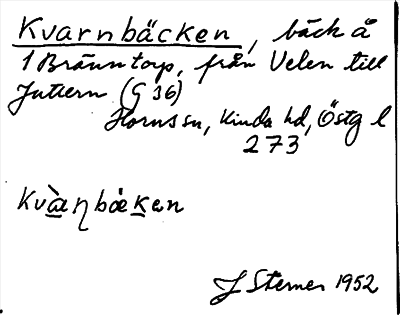 Kvarnbäcken, bäck å
1 Bränntorp, från Velen till
Juttern (G 36)
Horns sn, Kinda hd, Östg l
273
Kvàꞃbæken
J Sterner 1952